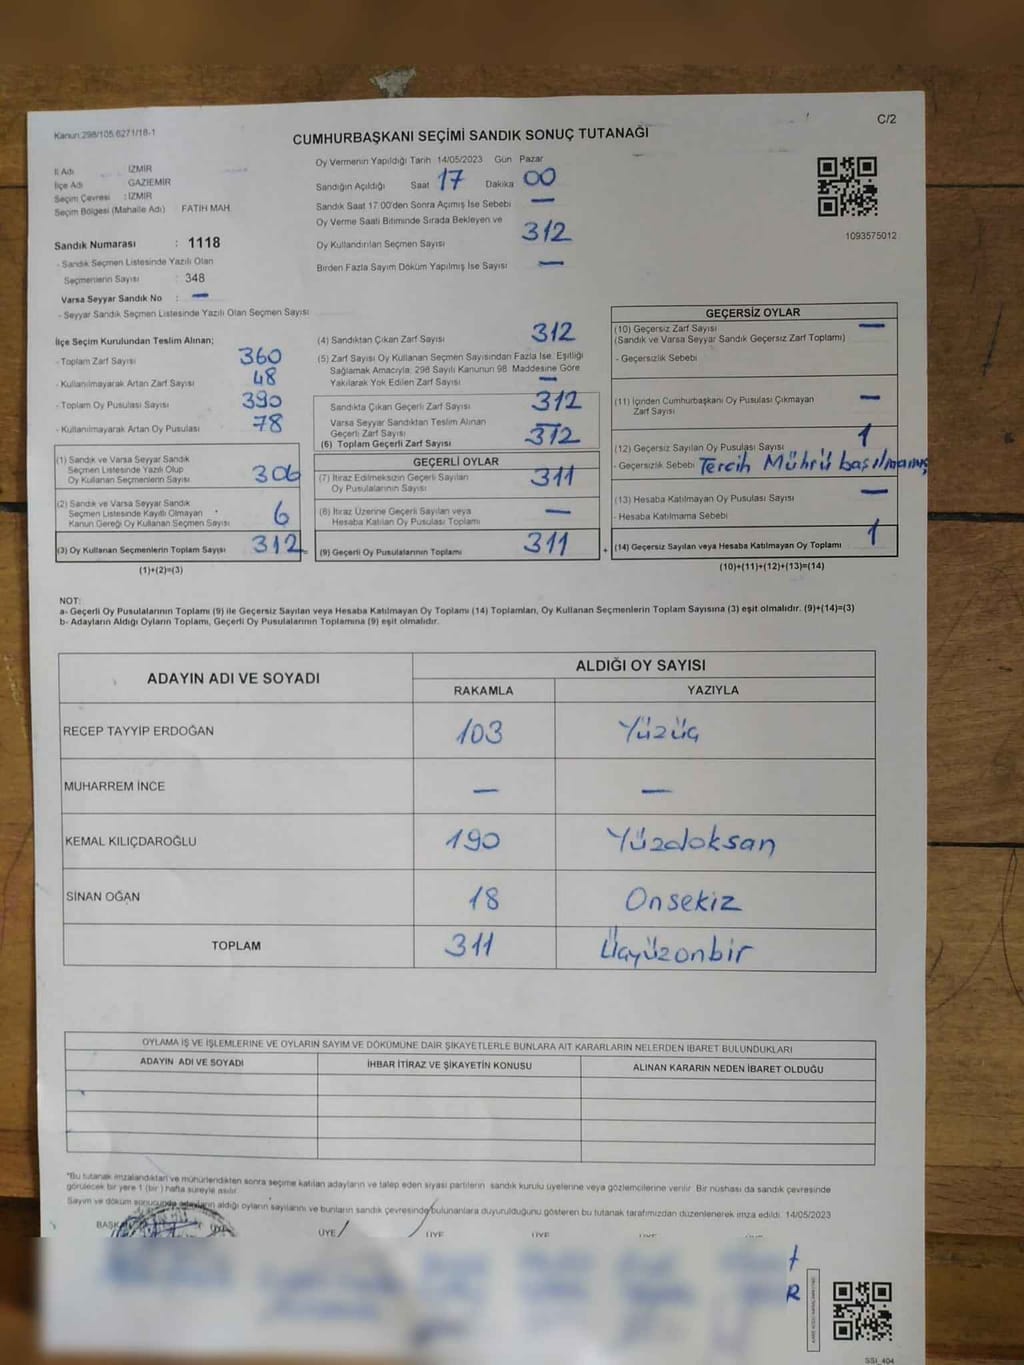 Kanun:298/105.6271/18-1
C/2
CUMHURBAŞKANI SEÇİMİ SANDIK SONUÇ TUTANAĞI
İl Adı : İZMİR
İlçe Adı GAZİEMİR
Seçim Çevresi : İZMİR
Seçim Bölgesi (Mahalle Adı) FATİH MAH.
Sandık Numarası : 1118
- Sandık Seçmen Listesinde Yazılı Olan
Seçmenlerin Sayısı : 348
Varsa Seyyar Sandık No : —
- Seyyar Sandık Seçmen Listesinde Yazılı Olan Seçmen Sayısı
Oy Vermenin Yapıldığı Tarih 14/05/2023 Gün Pazar
Sandığın Açıldığı Saat 17 Dakika 00
Sandık Saat 17.00'den Sonra Açımış İse Sebebi —
Oy Verme Saati Bitiminde Sırada Bekleyen ve
Oy Kullandırılan Seçmen Sayısı 312
Birden Fazla Sayım Döküm Yapılmış İse Sayısı —
1093575012
İlçe Seçim Kurulundan Teslim Alınan;
- Toplam Zarf Sayısı 360
- Kullanılmayarak Artan Zarf Sayısı 48
- Toplam Oy Pusulası Sayısı 390
- Kullanılmayarak Artan Oy Pusulası 78
(1) Sandık ve Varsa Seyyar Sandık
Seçmen Listesinde Yazılı Olup
Oy Kullanan Seçmenlerin Sayısı 306
(2) Sandık ve Varsa Seyyar Sandık
Seçmen Listesinde Kayıtlı Olmayan
Kanun Gereği Oy Kullanan Seçmen Sayısı 6
(3) Oy Kullanan Seçmenlerin Toplam Sayısı 312
(1)+(2)=(3)
(4) Sandıktan Çıkan Zarf Sayısı 312
(5) Zarf Sayısı Oy Kullanan Seçmen Sayısından Fazla İse, Eşitliği
Sağlamak Amacıyla; 298 Sayılı Kanunun 98. Maddesine Göre
Yakılarak Yok Edilen Zarf Sayısı —
Sandıkta Çıkan Geçerli Zarf Sayısı 312
Varsa Seyyar Sandıktan Teslim Alınan
Geçerli Zarf Sayısı —
(6) Toplam Geçerli Zarf Sayısı 312
GEÇERLİ OYLAR
(7) İtiraz Edilmeksizin Geçerli Sayılan
Oy Pusulalarının Sayısı 311
(8) İtiraz Üzerine Geçerli Sayılan veya
Hesaba Katılan Oy Pusulası Toplamı —
(9) Geçerli Oy Pusulalarının Toplamı 311
GEÇERSİZ OYLAR
(10) Geçersiz Zarf Sayısı —
(Sandık ve Varsa Seyyar Sandık Geçersiz Zarf Toplamı)
- Geçersizlik Sebebi
(11) İçinden Cumhurbaşkanı Oy Pusulası Çıkmayan
Zarf Sayısı —
(12) Geçersiz Sayılan Oy Pusulası Sayısı 1
- Geçersizlik Sebebi Tercih Mührü basılmamış
(13) Hesaba Katılmayan Oy Pusulası Sayısı —
- Hesaba Katılmama Sebebi
(14) Geçersiz Sayılan veya Hesaba Katılmayan Oy Toplamı 1
(10)+(11)+(12)+(13)=(14)
NOT:
a- Geçerli Oy Pusulalarının Toplamı (9) ile Geçersiz Sayılan veya Hesaba Katılmayan Oy Toplamı (14) Toplamları, Oy Kullanan Seçmenlerin Toplam Sayısına (3) eşit olmalıdır. (9)+(14)=(3)
b- Adayların Aldığı Oyların Toplamı, Geçerli Oy Pusulalarının Toplamına (9) eşit olmalıdır.
ADAYIN ADI VE SOYADI
ALDIĞI OY SAYISI
RAKAMLA YAZIYLA
RECEP TAYYİP ERDOĞAN 103 Yüzüç
MUHARREM İNCE — —
KEMAL KILIÇDAROĞLU 190 Yüzdoksan
SİNAN OĞAN 18 Onsekiz
TOPLAM 311 Üçyüzonbir
OYLAMA İŞ VE İŞLEMLERİNE VE OYLARIN SAYIM VE DÖKÜMÜNE DAİR ŞİKAYETLERLE BUNLARA AİT KARARLARIN NELERDEN İBARET BULUNDUKLARI
ADAYIN ADI VE SOYADI İHBAR İTİRAZ VE ŞİKAYETİN KONUSU ALINAN KARARIN NEDEN İBARET OLDUĞU
*Bu tutanak imzalandıktan ve mühürlendikten sonra seçime katılan adayların ve talep eden siyasi partilerin sandık kurulu üyelerine veya gözlemcilerine verilir. Bir nüshası da sandık çevresinde
görülecek bir yere 1 (bir) hafta süreyle asılır.
Sayım ve döküm sonucunda adayların aldığı oyların sayılarını ve bunların sandık çevresinde bulunanlara duyurulduğunu gösteren bu tutanak tarafımızdan düzenlenerek imza edildi. 14/05/2023
BAŞK ÜYE ÜYE ÜYE ÜYE
R
SSI_404